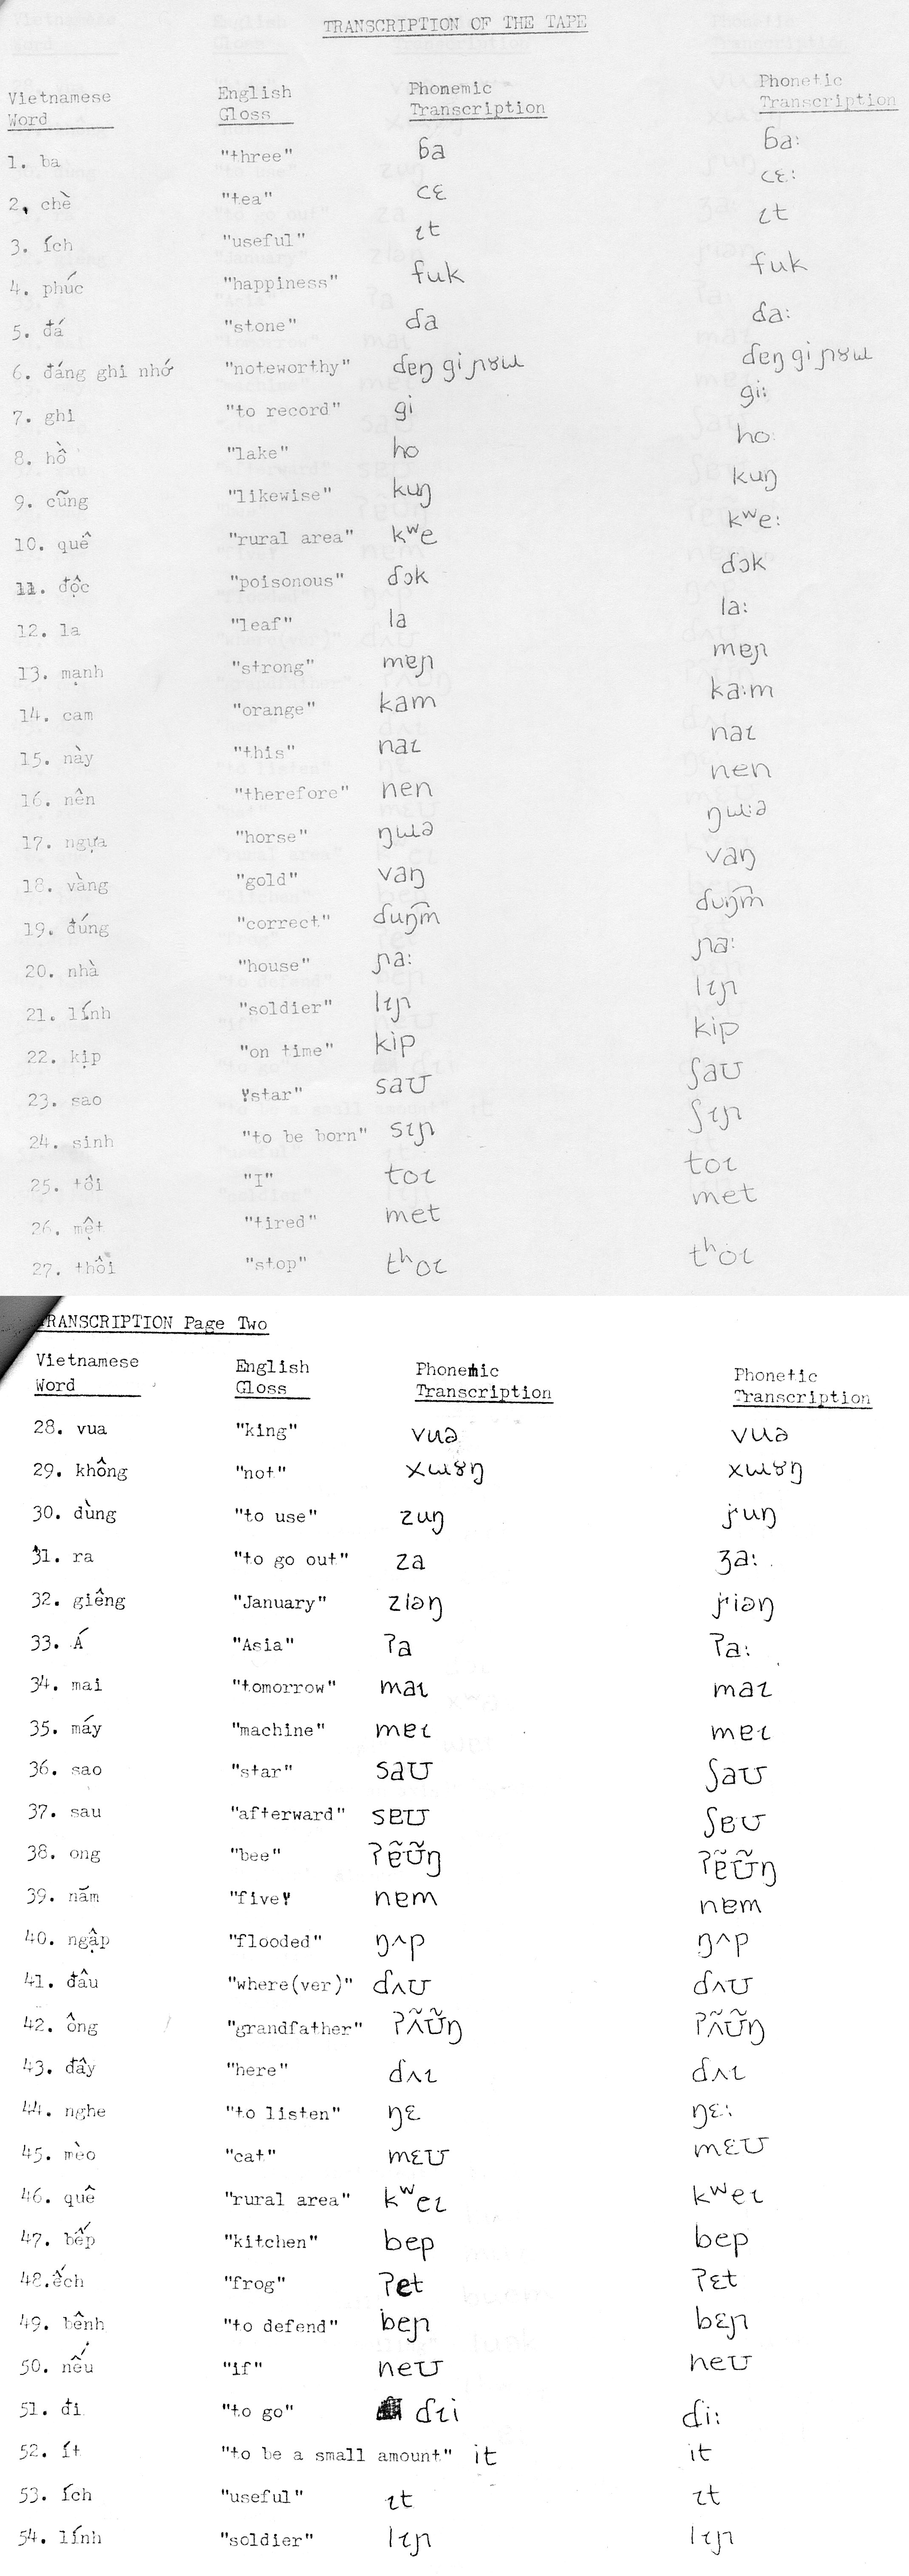 TRANSCRIPTION OF THE TAPE
Vietnamese Word English Gloss Phonemic Transcription Phonetic Transcription
1. ba "three" ɓa ɓa:
2. chè "tea" cɛ cɛ:
3. ích "useful" ɩt ɩt
4. phúc "happiness" fuk fuk
5. đá "stone" ɗa ɗa:
6. đáng ghi nhớ "noteworthy" ɗɐŋ gi ɲɤɯ ɗɐŋ gi ɲɤɯ
7. ghi "to record" gi gi:
8. hồ "lake" ho ho:
9. cũng "likewise" kuŋ kuŋ
10. quê "rural area" kʷe kʷe:
11. độc "poisonous" ɗɔk ɗɔk
12. la "leaf" la la:
13. mạnh "strong" mɐɲ mɐɲ
14. cam "orange" kam ka:m
15. này "this" naɩ naɩ
16. nên "therefore" nen nen
17. ngựa "horse" ŋɯə ŋɯ:ə
18. vàng "gold" vaŋ vaŋ
19. đúng "correct" ɗuŋ͡m ɗuŋ͡m
20. nhà "house" ɲa: ɲa:
21. lính "soldier" lɩɲ lɩɲ
22. kịp "on time" kip kip
23. sao "star" saʊ ʃaʊ
24. sinh "to be born" sɩɲ ʃɩɲ
25. tôi "I" toɩ toɩ
26. mệt "tired" met met
27. thôi "stop" tʰoɩ tʰoɩ
TRANSCRIPTION Page Two
Vietnamese Word English Gloss Phonemic Transcription Phonetic Transcription
28. vua "king" vuə vuə
29. không "not" xɯɤŋ xɯɤŋ
30. dùng "to use" zuŋ ɟuŋ
31. ra "to go out" za ʒa:
32. giêng "January" ziəŋ ɟiəŋ
33. Á "Asia" ʔa ʔa:
34. mai "tomorrow" maɩ maɩ
35. máy "machine" mɐɩ mɐɩ
36. sao "star" saʊ ʃaʊ
37. sau "afterward" sɐʊ ʃɐʊ
38. ong "bee" ʔɐ̃ʊ̃ŋ ʔɐ̃ʊ̃ŋ
39. năm "five" nɐm nɐm
40. ngập "flooded" ŋʌp ŋʌp
41. đâu "where(ver)" ɗʌʊ ɗʌʊ
42. ông "grandfather" ʔʌ̃ʊ̃ŋ ʔʌ̃ʊ̃ŋ
43. đây "here" ɗʌɩ ɗʌɩ
44. nghe "to listen" ŋɛ ŋɛ:
45. mèo "cat" mɛʊ mɛʊ
46. quê "rural area" kʷeɩ kʷeɩ
47. bếp "kitchen" bep bep
48.ếch "frog" ʔet ʔɛt
49. bênh "to defend" beɲ bɛɲ
50. nếu "if" neʊ neʊ
51. đi "to go" ɗɩi ɗi:
52. ít "to be a small amount" it it
53. ích "useful" ɩt ɩt
54. lính "soldier" lɩɲ lɩɲ